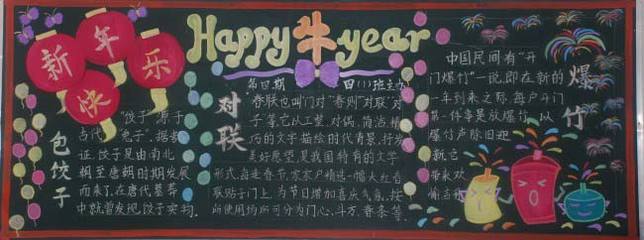 Happy 牛 year
新年快乐
第四期 四(1)班主办
包饺子
"饺子"源于
古代"兔子".据考
证,饺子是由南北
朝至唐朝时期发展
而来了,在唐代墓葬
中就曾发现饺子实物.
对联
春联也叫门对"春贴"对联"对
子",它以工整、对偶、简洁、精
巧的文字描绘时代背景,抒发
美好愿望,是我国特有的文学
形式.每逢春节,家家户精选一幅大红春
联贴于门上,为节日增加喜庆气氛.按
所使用场所可分为门心、斗方、春条等.
爆竹
中国民间有"开
门爆竹"一说.即在新的
一年到来之际,每户开门
第一件事是放爆竹,以
爆竹声除旧迎
新.它
带来欢
愉吉利